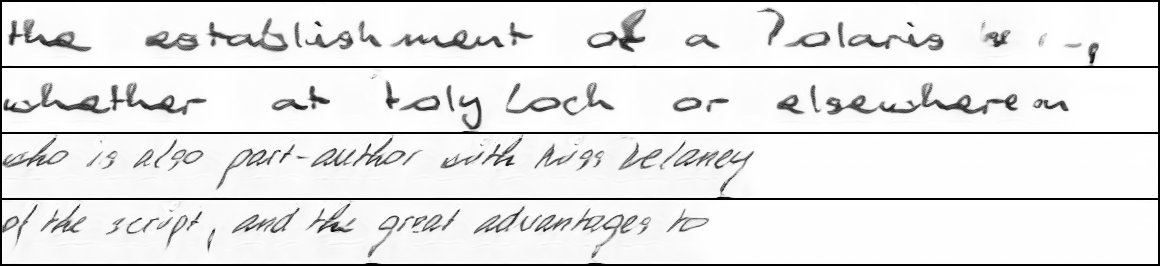 the establishment of a Polaris
whether at Holy Loch or elsewhere on
who is also part-author with Miss Delaney
of the script, and the great advantages to